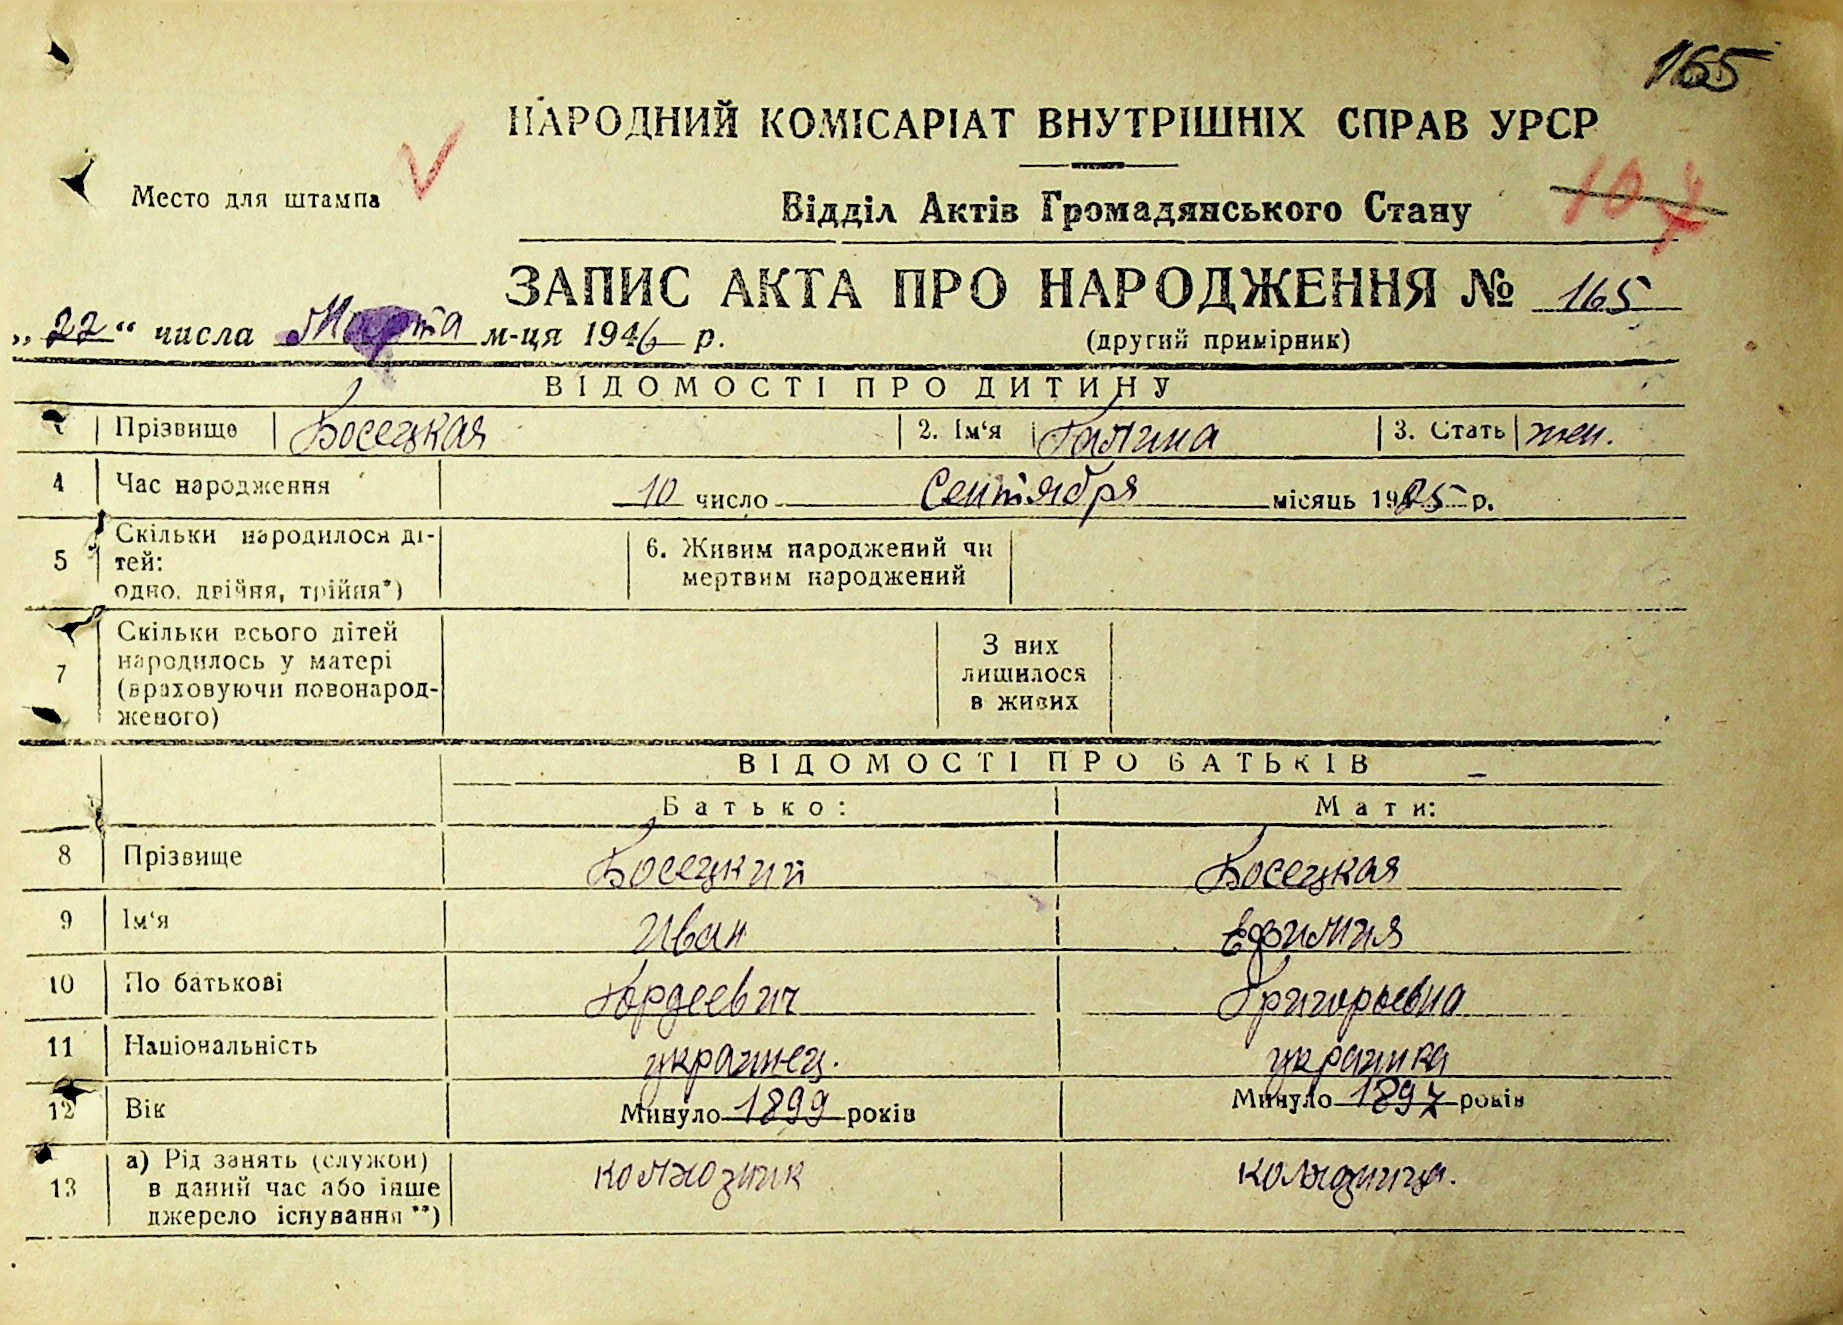 165
НАРОДНИЙ КОМІСАРІАТ ВНУТРІШНІХ СПРАВ УРСР
Место для штампа
Відділ Актів Громадянського Стану
107
ЗАПИС АКТА ПРО НАРОДЖЕННЯ № 165
„22“ числа Марта м-ця 1946 р.
(другий примірник)
ВІДОМОСТІ ПРО ДИТИНУ
Прізвище Босецкая 2. Ім‘я Галина 3. Стать жен.
4 Час народження 10 число Сентября місяць 1925 р.
5 Скільки народилося ді-
тей:
одно, двійня, трійня*)
6. Живим народжений чи
мертвим народжений
7 Скільки всього дітей
народилось у матері
(враховуючи новонарод-
женого)
З них
лишилося
в живих
ВІДОМОСТІ ПРО БАТЬКІВ
Батько: Мати:
8 Прізвище Босецкий Босецкая
9 Ім‘я Иван Ефимия
10 По батькові Гордеевич Григорьевна
11 Національність украинец. украинка
12 Вік Минуло 1899 років Минуло 1897 років
13 а) Рід занять (служби)
в даний час або інше
джерело існування **)
колхозник колхозница.